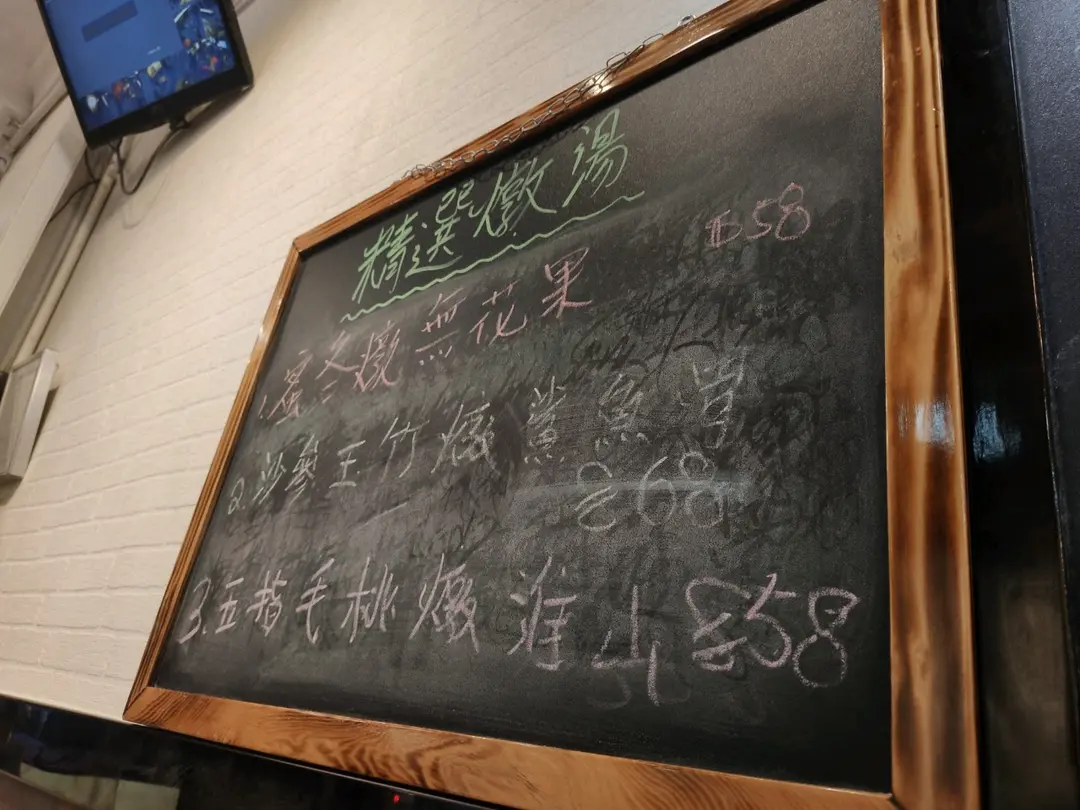 精選燉湯
1.蜜棗燉無花果 $58
2.沙參玉竹燉鯊魚骨
$68
3.五指毛桃燉淮山 $58